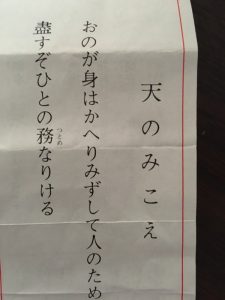 天のみこえ
おのが身はかへりみずして人のため
盡すぞひとの務なりける
つとめ